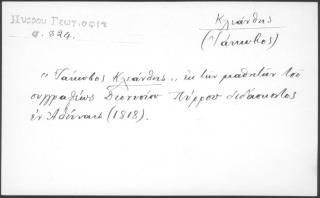 Πύρρου Γεωγραφία
σ. 324.
Κλεάνθης
(Ἰάκωβος)
"Ἰάκωβος Κλεάνθης" ἐκ τῶν μαθητῶν τοῦ
συγγραφέως Διονυσίου Πύρρου διδάσκοντος
ἐν Ἀθήναις (1818).